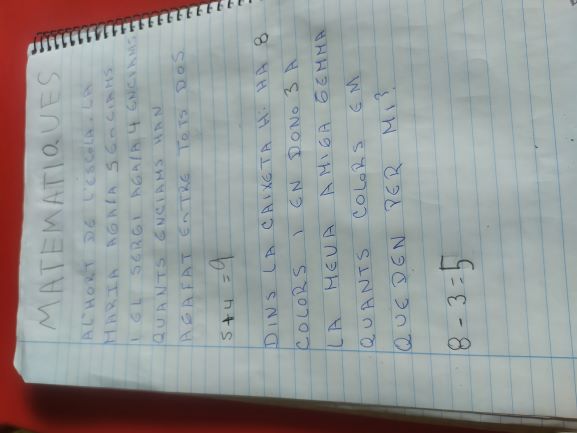 MATEMATIQUES
AL'HORT DE L'ESCOLA. LA
MARIA AGAFA 5 ENCIAMS
I EL SERGI AGAFA 4 ENCIAMS
QUANTS ENCIAMS HAN
AGAFAT ENTRE TOTS DOS
5+4=9
DINS LA CAIXETA H. HA 8
COLORS I EN DONO 3 A
LA MEVA AMIGA GEMMA
QUANTS COLORS EM
QUEDEN PER MI?
8-3=5